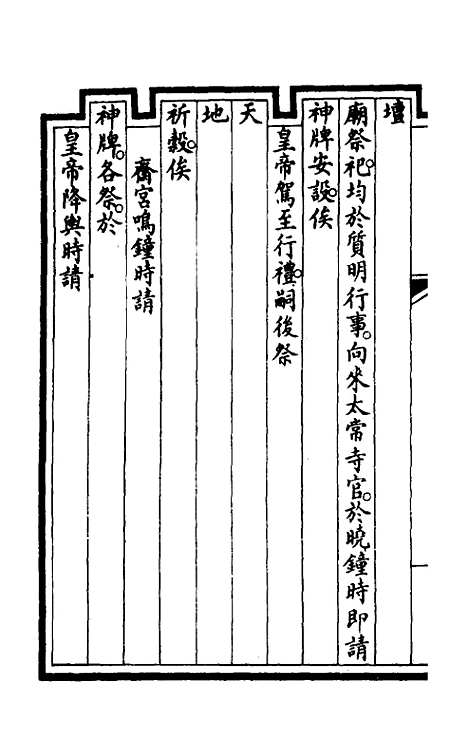 壇
廟祭祀。均於質明行事。向來太常寺官。於曉鐘時即請
神牌安設。俟
皇帝駕至行禮。嗣後祭
天
地
祈穀。俟
齋宮鳴鐘時請
神牌。各祭。於
皇帝降輿時請